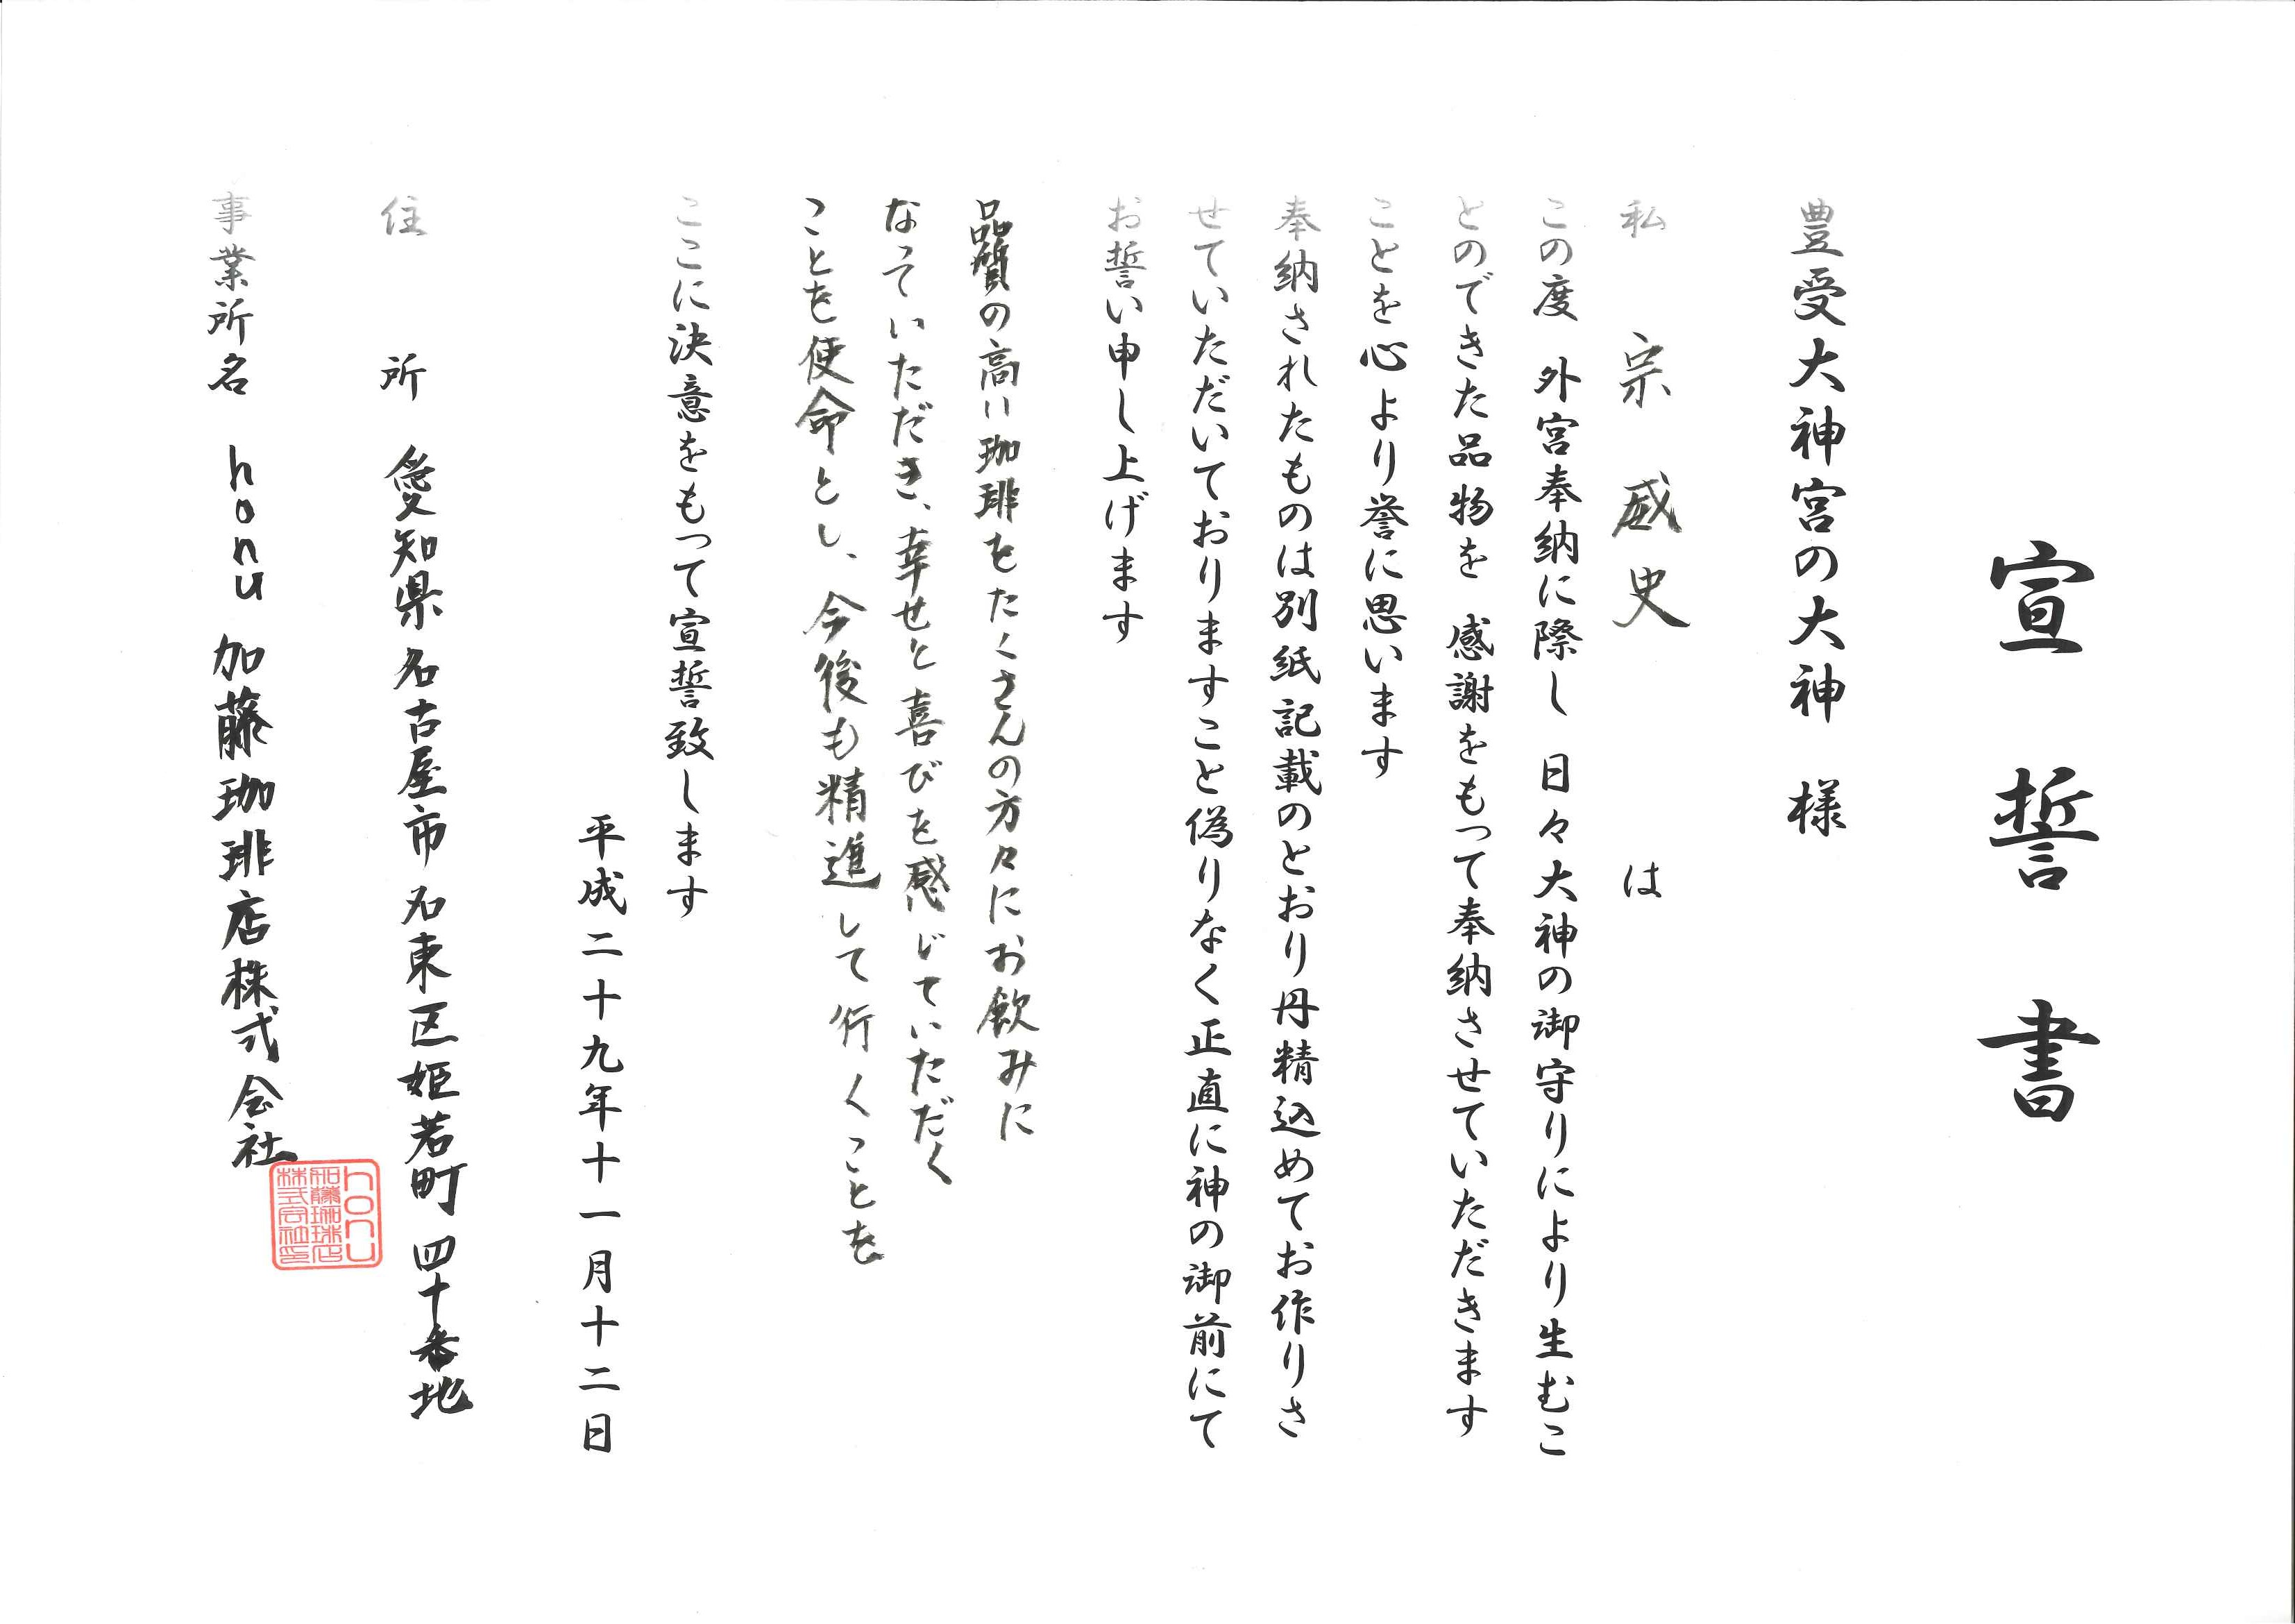 宣誓書
豊受大神宮の大神 様
私 宗 威史 は
この度 外宮奉納に際し 日々大神の御守りにより生むこ
とのできた品物を 感謝をもって奉納させていただきます
ことを心より誉に思います
奉納されたものは別紙記載のとおり丹精込めてお作りさ
せていただいておりますこと偽りなく正直に神の御前にて
お誓い申し上げます
品質の高い珈琲をたくさんの方々にお飲みに
なっていただき、幸せと喜びを感じていただく
ことを使命とし、今後も精進して行くことを
ここに決意をもって宣誓致します
平成二十九年十一月十二日
住 所 愛知県名古屋市名東区姫若町四十番地
事業所名 honu加藤珈琲店株式会社
honu
加藤珈琲店
株式会社印